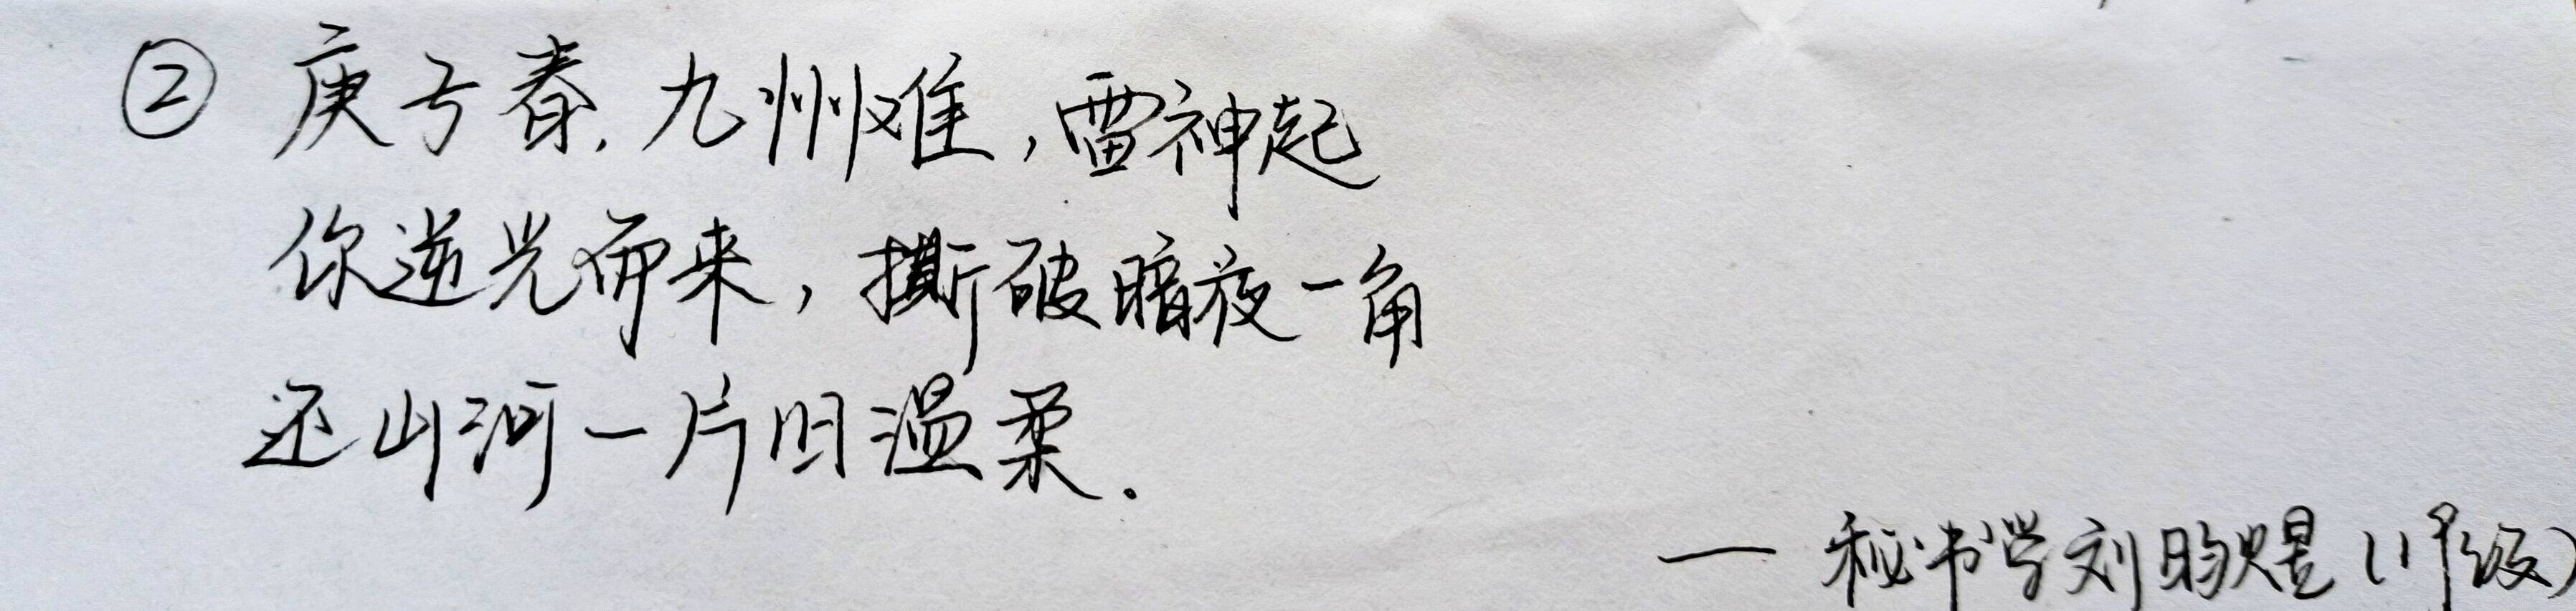 ② 庚子春,九州难,雷神起
你逆光而来,撕破暗夜一角
还山河一片旧温柔.
— 秘书学刘昀煜(19级)